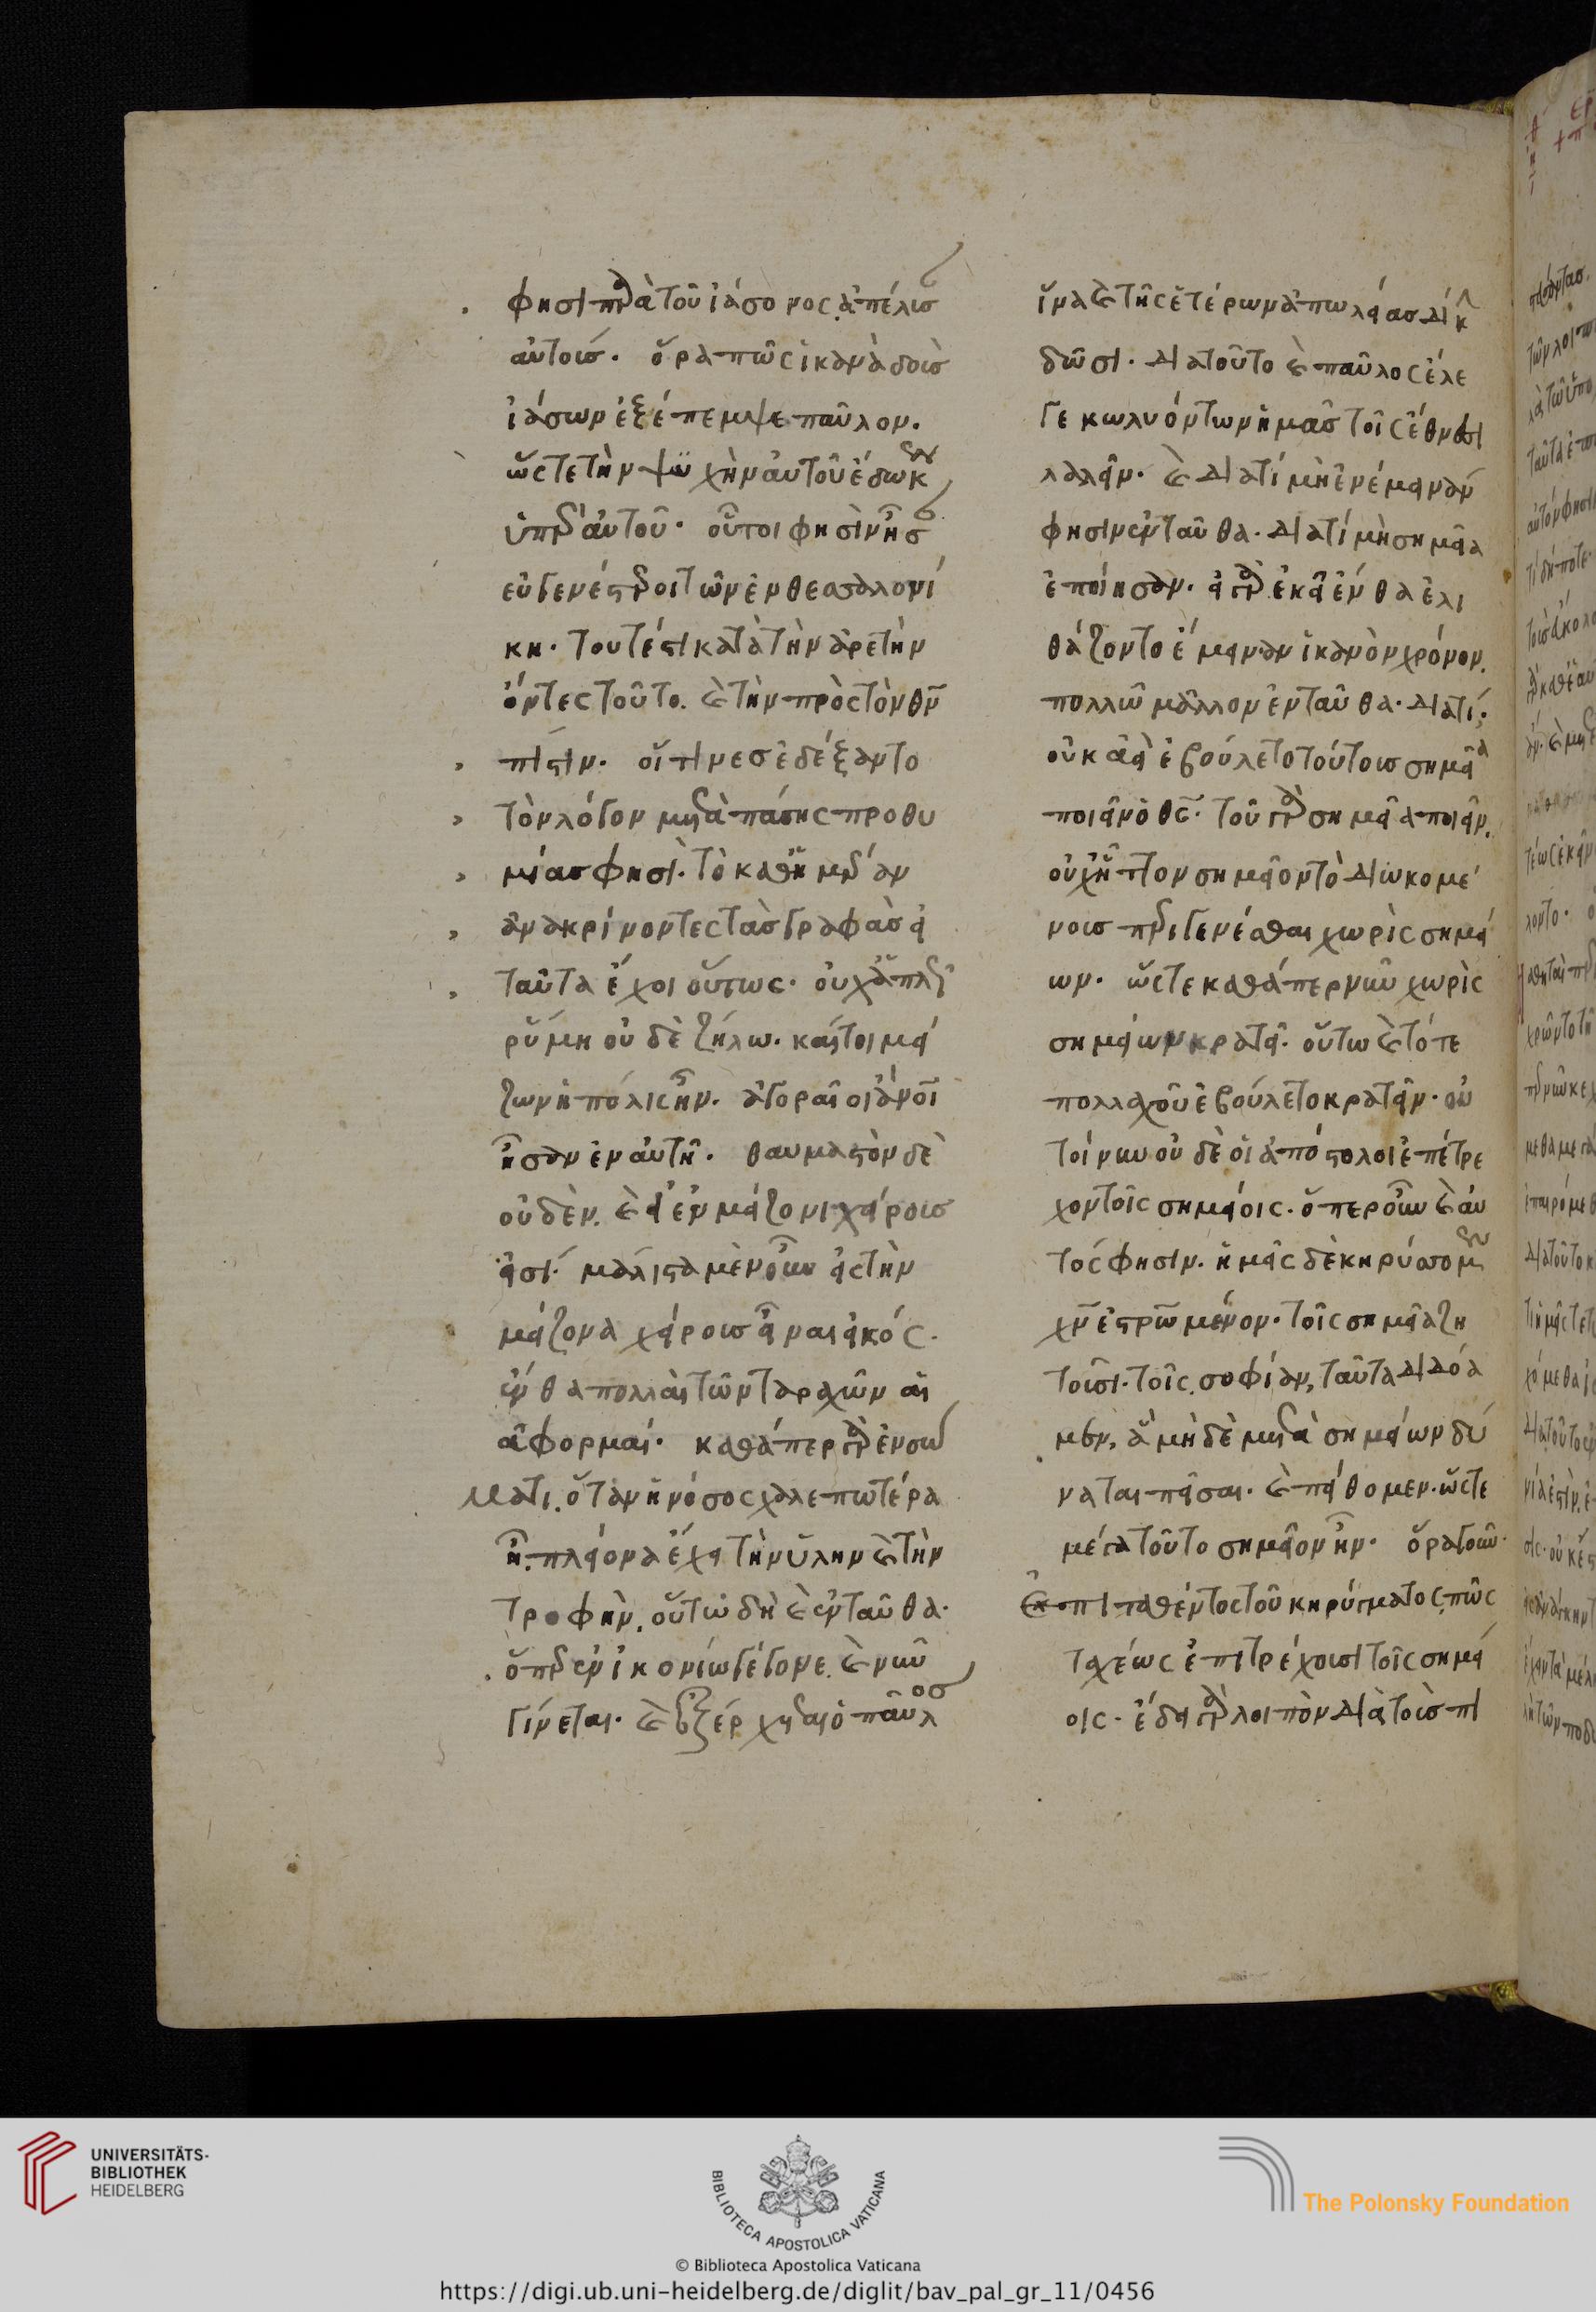 φησι παρὰ τοῦ ἰάσονος ἀπέλυσαν
αὐτούς. ὅρα πῶς ἱκανὰ δοὺς
ἰάσων ἐξέπεμψε παῦλον.
ὥστε τὴν ψυχὴν αὐτοῦ ἔδωκεν
ὑπὲρ αὐτοῦ. οὗτοι φησὶν ἦσαν
εὐγενέστεροι τῶν ἐν θεσσαλονί
κη. τουτέστι κατὰ τὴν ἀρετὴν
ὄντες τοῦτο. καὶ τὴν πρὸς τὸν θν
πίστιν. οἵτινες ἐδέξαντο
τὸν λόγον μετὰ πάσης προθυ
μίας φησὶ. τὸ καθ' ἡμέραν
ἀνακρίνοντες τὰς γραφὰς εἰ
ταῦτα ἔχοι οὕτως. οὐχ ἁπλῶς
ρύμη οὐδὲ ζήλω. καίτοι μεί
ζων ἡ πόλις ἦν. ἀγοραῖοι ἄνοι
ἦσαν ἐν αὐτῆ. θαυμαστὸν δὲ
οὐδὲν. καὶ εἰ ἐν μείζονι χείρους
εἰσί. μάλιστα μὲν οὖν εἰς τὴν
μείζονα χείρους εἶναι εἰκός.
ἔνθα πολλαὶ τῶν ταραχῶν αἱ
ἀφορμαί. καθάπερ γὰρ ἐν σώ
ματι, ὅταν ἡ νόσος χαλεπωτέρα
ἦ. πλείονα ἔχει τὴν ὕλην καὶ τὴν
τροφὴν, οὕτω δὴ καὶ ἐνταῦθα.
ὅπερ ἐν ἰκονίω γέγονε. καὶ νῦν
γίνεται. καὶ ἐξέρχεται ὁ παῦλος
ἵνα καὶ τῆς ἑτέρων ἀπωλείας δίκην
δῶσι. διατοῦτο καὶ παῦλος ἔλε
γε κωλυόντων ἡμᾶς τοῖς ἔθνεσι
λαλεῖν. καὶ διατί μὴ ἐνέμειναν
φησιν ἐνταῦθα. διατί μὴ σημεῖα
ἐποίησαν. εἰ γὰρ ἐκεῖ ἔνθα ἐλι
θάζοντο ἔμειναν ἱκανὸν χρόνον.
πολλῶ μᾶλλον ἐνταῦθα. διατί;
οὐκ ἀεὶ ἐβούλετο τούτους σημεῖα
ποιεῖν ὁ θς. τοῦ γὰρ σημεῖα ποιεῖν.
οὐχ ἧττον σημεῖον τὸ διωκομέ
νοις περιγενέσθαι χωρὶς σημεί
ων. ὥστε καθάπερ νῦν χωρὶς
σημείων κρατεῖ. οὕτω καὶ τότε
πολλαχοῦ ἐβούλετο κρατεῖν. οὐ
τοίνυν οὐδὲ οἱ ἀπόστολοι ἐπέτρε
χον τοῖς σημείοις. ὅπερ οὖν καὶ αὐ
τός φησιν. ἡμεῖς δὲ κηρύσσομεν
χν ἐστρωμένον. τοῖς σημεῖα ζη
τοῦσι. τοῖς σοφίαν, ταῦτα δίδο
μεν, ἃ μὴ δὲ μετὰ σημείων δύ
ναται πεῖσαι. καὶ πείθομεν. ὥστε
μέγα τοῦτο σημεῖον ἦν. ὅρα γοῦν
ἐκοπι ταθέντος τοῦ κηρύγματος, πῶς
ταχέως ἐπιτρέχουσι τοῖς σημεί
οις. ἔδει γὰρ λοιπὸν διὰ τοὺς πι
UNIVERSITÄTS-
BIBLIOTHEK
HEIDELBERG
BIBLIOTECA APOSTOLICA VATICANA
© Biblioteca Apostolica Vaticana
The Polonsky Foundation
https://digi.ub.uni-heidelberg.de/diglit/bav_pal_gr_11/0456